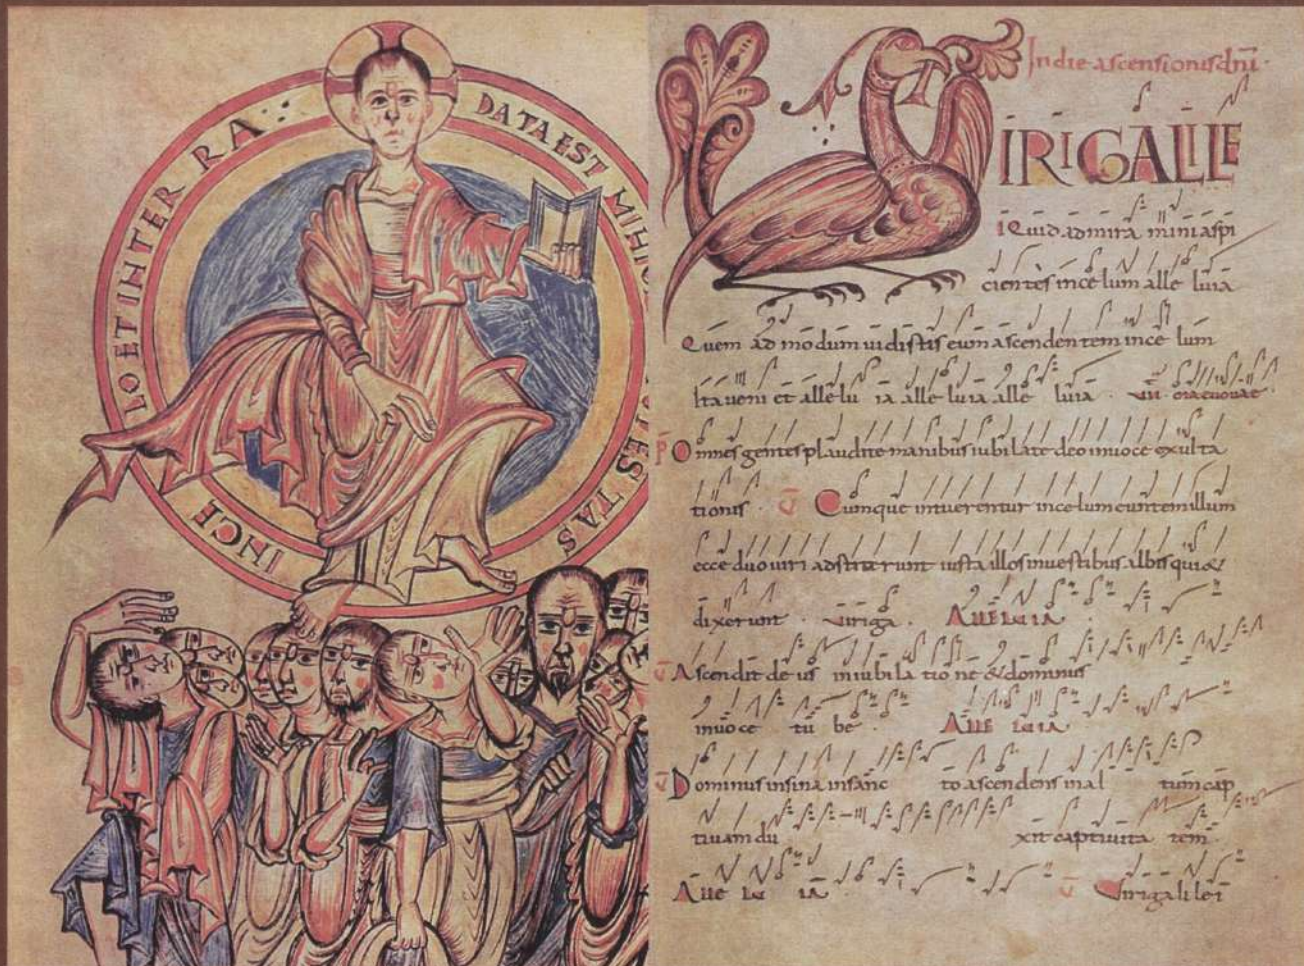 DATA EST MIHI
ESTAS
INCE
LO ET INTER RA
In die ascensionis dni
IRI GALILE
i Quid admiramini aspi
cientes in celum alleluia
Quem ad modum uidistis eum ascendentem in celum
ita ueni et alleluia alleluia alleluia
Omnes gentes plaudite manibus iubilate deo in uoce exulta
tionis Cumque intuerentur in celum euntem illum
ecce duo uiri adstiterunt iuxta illos in uestibus albis qui &
dixerunt uiri ga ALLELUIA
Ascendit deus in iubilatione & dominus
in uoce tube ALLELUIA
Dominus in sina in sancto ascendens in altum cap
tiuam duxit captiuitatem
Alleluia Viri galilei